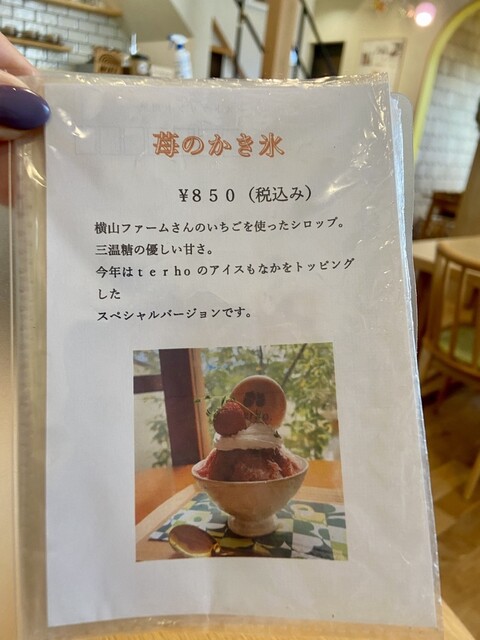 苺のかき氷
¥850（税込み）
横山ファームさんのいちごを使ったシロップ。
三温糖の優しい甘さ。
今年はterhoのアイスもなかをトッピング
した
スペシャルバージョンです。